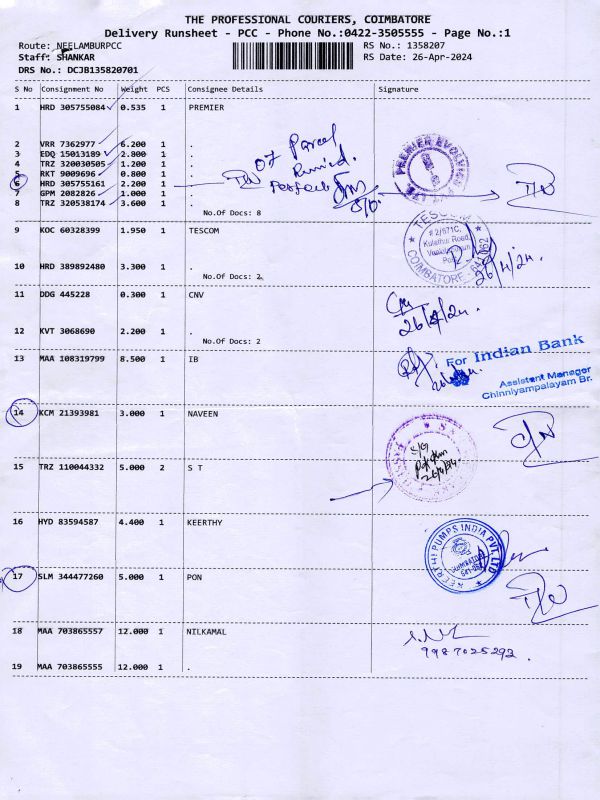 THE PROFESSIONAL COURIERS, COIMBATORE
Delivery Runsheet - PCC - Phone No.:0422-3505555 - Page No.:1
Route: NEELAMBURPCC
RS No.: 1358207
Staff: SHANKAR
RS Date: 26-Apr-2024
DRS No.: DCJB135820701
S No Consignment No Weight PCS Consignee Details Signature
1 HRD 305755084 0.535 1 PREMIER
2 VRR 7362977 6.200 1 .
3 EDQ 15013189 2.800 1 .
4 TRZ 320030505 1.200 1 .
5 RKT 9009696 0.800 1 .
6 HRD 305755161 2.200 1 .
7 GPM 2082826 1.000 1 .
8 TRZ 320538174 3.600 1 .
No.Of Docs: 8
07 Parcel
PREMIER EVOLVICS
9 KOC 60328399 1.950 1 TESCOM
10 HRD 389892480 3.300 1 .
No.Of Docs: 2
TESCOM
# 2/671C,
Kulathur Road,
COIMBATORE - 641 062
26/4/24.
11 DDG 445228 0.300 1 CNV
12 KVT 3068690 2.200 1 .
No.Of Docs: 2
26/4/24.
13 MAA 108319799 8.500 1 IB
For Indian Bank
Assistant Manager
Chinniyampalayam Br.
14 KCM 21393981 3.000 1 NAVEEN
15 TRZ 110044332 5.000 2 S T
26/4/24
16 HYD 83594587 4.400 1 KEERTHY
KEERTHI PUMPS INDIA PVT. LTD
17 SLM 344477260 5.000 1 PON
18 MAA 703865557 12.000 1 NILKAMAL
9987025292.
19 MAA 703865555 12.000 1 .